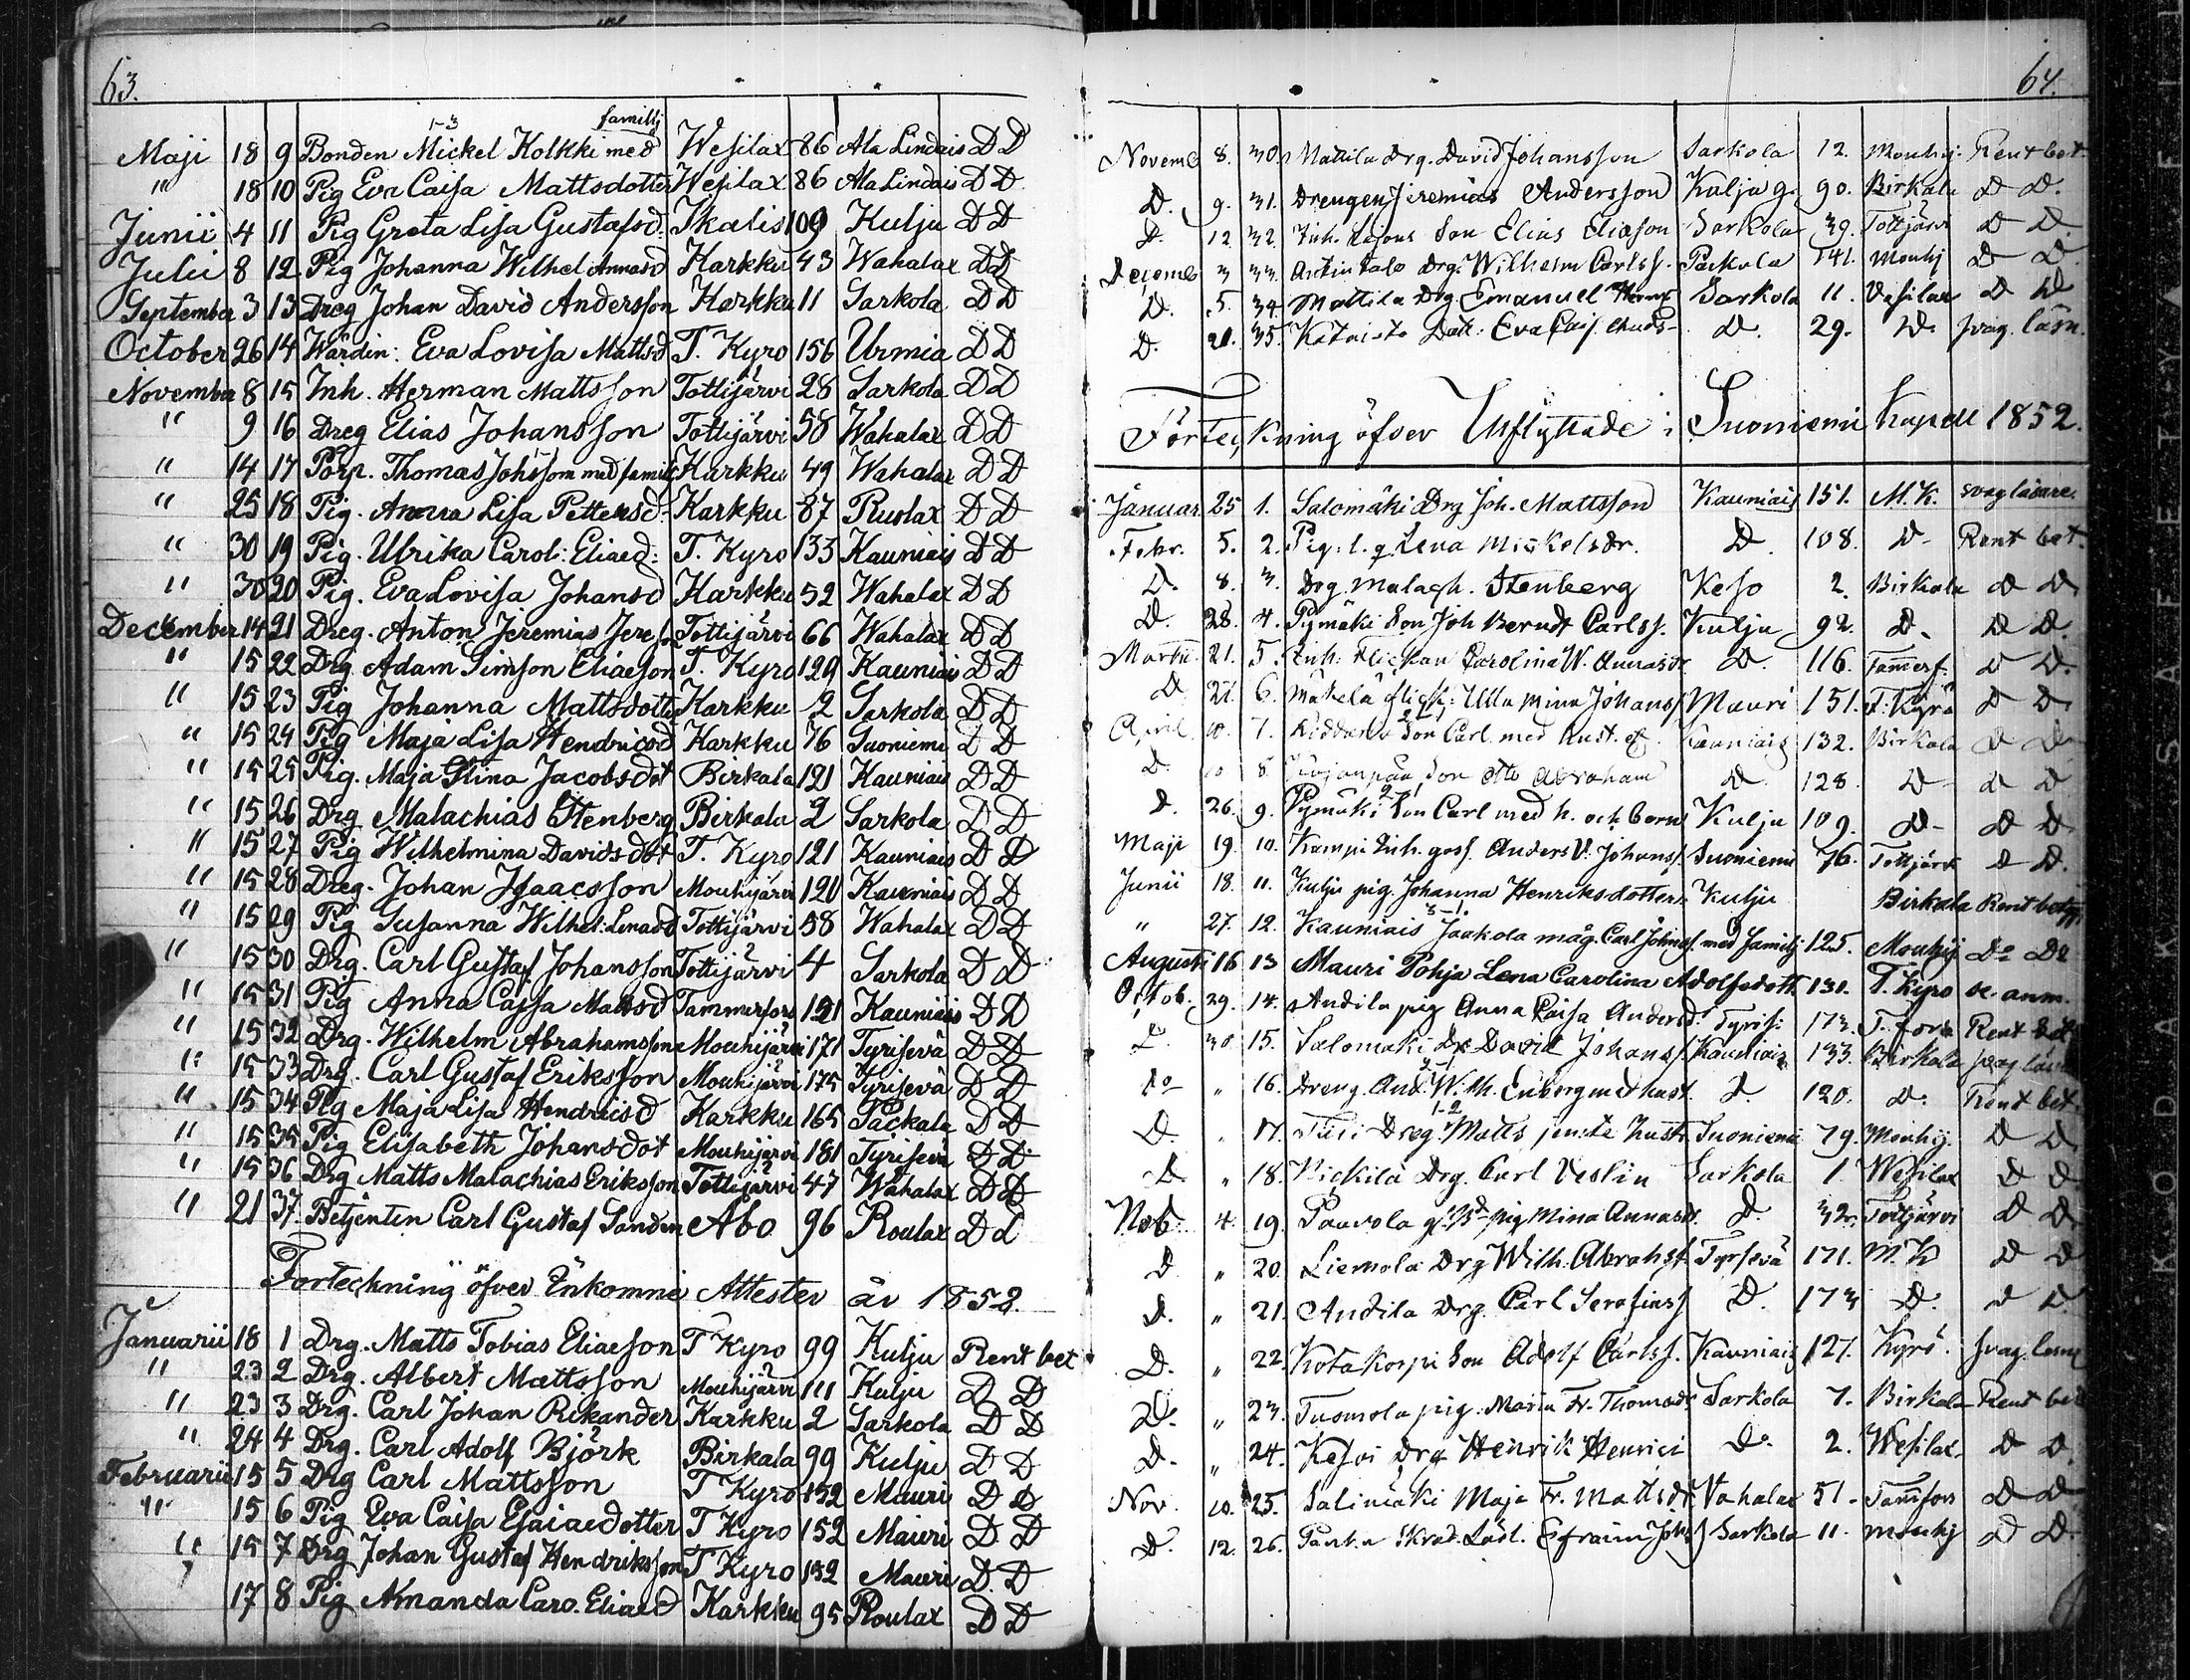 63.
1-3 familj
Maji 18 9 Bonden Mickel Kolkki med Wesilax 86 Ala Lindais D D
" 18 10 Pig Eva Caisa Mattsdotter Wesilax 86 Ala Lindais D D
Junii 4 11 Pig Greta Lisa Gustafsd. Ikalis 109 Kulju D D
Julii 8 12 Pig Johanna Wilhel Annasd Karkku 43 Wahalax D D
September 3 13 Dreg Johan David Andersson Karkku 11 Sarkola D D
October 26 14 Wärdin: Eva Lovisa Mattsd T. Kyro 156 Urmia D D
November 8 15 Inh. Herman Mattsson Tottijärvi 28 Sarkola D D
" 9 16 Dreg Elias Johansson Tottijärvi 58 Wahalax D D
" 14 17 Porp. Thomas Johsson med familj Karkku 49 Wahalax D D
" 25 18 Pig. Anna Lisa Pettersd: Karkku 87 Ruolax D D
" 30 19 Pig. Ulrika Carol: Eliaed: T. Kyro 133 Kauniais D D
" 30 20 Pig. Eva Lovisa Johansd Karkku 52 Wahalax D D
December 14 21 Dreg. Anton Jeremias Jeress Tottijärvi 66 Wahalax D D
" 15 22 Drg Adam Simson Eliaeson T. Kyro 129 Kauniais D D
" 15 23 Pig Johanna Mattsdotter Karkku 2 Sarkola D D
" 15 24 Pig Maja Lisa Hendricsd Karkku 76 Suoniemi D D
" 15 25 Pig. Maja Stina Jacobsdot Birkala 121 Kauniais D D
" 15 26 Drg Malachias Stenberg Birkala 2 Sarkola D D
" 15 27 Pig Wilhelmina Davidsdot T. Kyro 121 Kauniais D D
" 15 28 Dreg. Johan Isaacsson Mouhijärvi 120 Kauniais D D
" 15 29 Pig Susanna Wilhel: Lenasd Tottijärvi 58 Wahalax D D
" 15 30 Drg. Carl Gustaf Johansson Tottijärvi 4 Sarkola D D
" 15 31 Pig Anna Caisa Mattsd Tammerfors 121 Kauniais D D
" 15 32 Drg. Wilhelm Abrahamsson Mouhijärvi 171 Tyrisevä D D
" 15 33 Drg. Carl Gustaf Eriksson Mouhijärvi 175 Tyrisevä D D
" 15 34 Pig Maja Lisa Hendricsd Karkku 165 Packala D D
" 15 35 Pig Elisabeth Johansdot Mouhijärvi 181 Tyrisevä D D
" 15 36 Drg Matts Malachias Eriksson Tottijärvi 47 Wahalax D D
" 21 37 Betjenten Carl Gustaf Sanden Abo 96 Roulax D D
Forteckning öfver Inkomne Attester år 1852.
Januarii 18 1 Drg. Matts Tobias Eliaeson T Kyro 99 Kulju Rent bet
" 23 2 Drg. Albert Mattsson Mouhijärvi 111 Kulju D D
" 23 3 Drg. Carl Johan Rikander Karkku 2 Sarkola D D
" 24 4 Drg. Carl Adolf Björk Birkala 99 Kulju D D
Februarii 15 5 Drg Carl Mattsson T Kyro 152 Mauri D D
" 15 6 Pig Eva Caisa Esaiaedotter T Kyro 152 Mauri D D
" 15 7 Drg Johan Gustaf Hendriksson T Kyro 152 Mauri D. D
" 17 8 Pig Amanda Caro. Eliaed Karkku 95 Roulax D D
64.
Novemb 8. 30. Mattila Drg. David Johansson Sarkola 12. Mouhij. Rent bet.
D. 9. 31. Drengen Jeremias Andersson Kulju g. 90. Birkala D D.
D. 12. 32. Inh. Son Elias Eliason Sarkola 39. Tottjärv D D.
Decemb 3 33. Drg. Wilhelm Carlss. Packala 141. Mouhij D D
D. 5. 34. Mattila Drg. Emanuel Sarkola 11. Vesilax D D
D. 20. 35. Dott: Eva Cais. D. 29. D svag. läsn.
Förteckning öfver Utflyttade i Suoniemi Kapell 1852.
Januar. 25 1. Salomäki Drg Joh. Mattsson Kauniais 151. M. K. svag läsare.
Febr. 5. 2. Pig. Lena Mickelsdr. D. 108. D Rent bet.
D. 8. 3. Drg. Malach. Stenberg Keso 2. Birkala D D
D. 28. 4. Pymäki Son Joh Berndt Carlss. Kulju 92. D. D D.
Martii. 21. 5. Inh: Flickan Carolina W. Annasd D. 116. Tamerf. D D.
D 27. 6. Mäkelä flick: Ulla Mina Johanss Mauri 151. T. Kyrö D D
April. 10. 7. Son Carl med hust. Kauniais 132. Birkala D D
D. 10 8. Son Otto Abraham D 128. D D D
D. 26. 9. Pymäki Son Carl med h. och barn Kulju 109. D D D
Maji 19. 10. Kampi Inh. goss. Anders V. Johanss. Suoniemi 76. Tottjärv D D.
Junii 18. 11. Kulju pig. Johanna Henriksdotter Kulju Birkala Rent bet
" 27. 12. Kauniais Jaakola måg. Carl Johnss. med familj 125. Mouhij Do Do
Augusti 16 13 Mauri Pohja Lena Carolina Adolfsdott. 131. T. Kyro se. anm.
Octob. 29. 14. Andila pig Anna Caisa Andersd. Tyris: 173. T. fors Rent bet
D. 30. 15. Salomäki Dr. David Johanss. Kauniais 133. Birkala svag läsn
Do " 16. Dreng. And. Wilh. Enberg med hust. D. 120. D. Rent bet.
D. " 17. Dreg. Matts jemte hustr Suoniemi 79. Mouhij. D D
D " 18. Nickilä Drg. Carl Veslin Sarkola 1. Wesilax D D
Nob. 4. 19. Paavola pig Mina Annasd. D. 32. Tottjärvi D D.
D " 20. Liemola Drg Wilh. Abrahss. Tyrsevä 171. M. D D
D. " 21. Andila Drg. Carl Serafinss D. 173 D. D D
D. " 22. Kotakorpi Son Adolf Carlss. Kauniais 127. Kyrö. svag. läsn
D. " 23. Tuomola pig. Maria Fr. Thomasdr Sarkola 7. Birkala Rent bet
D. " 24. Kesoi Drg Henrik Henrici D. 2. Wesilax D D.
Nov. 10. 25. Salimäki Maja Fr. Mattsdr Vahalax 51. Tamfors D D
D. 12. 26. Skräd. Lärl. Efraim Johss Sarkola 11. Mouhij D D.
KODAK SAFETY